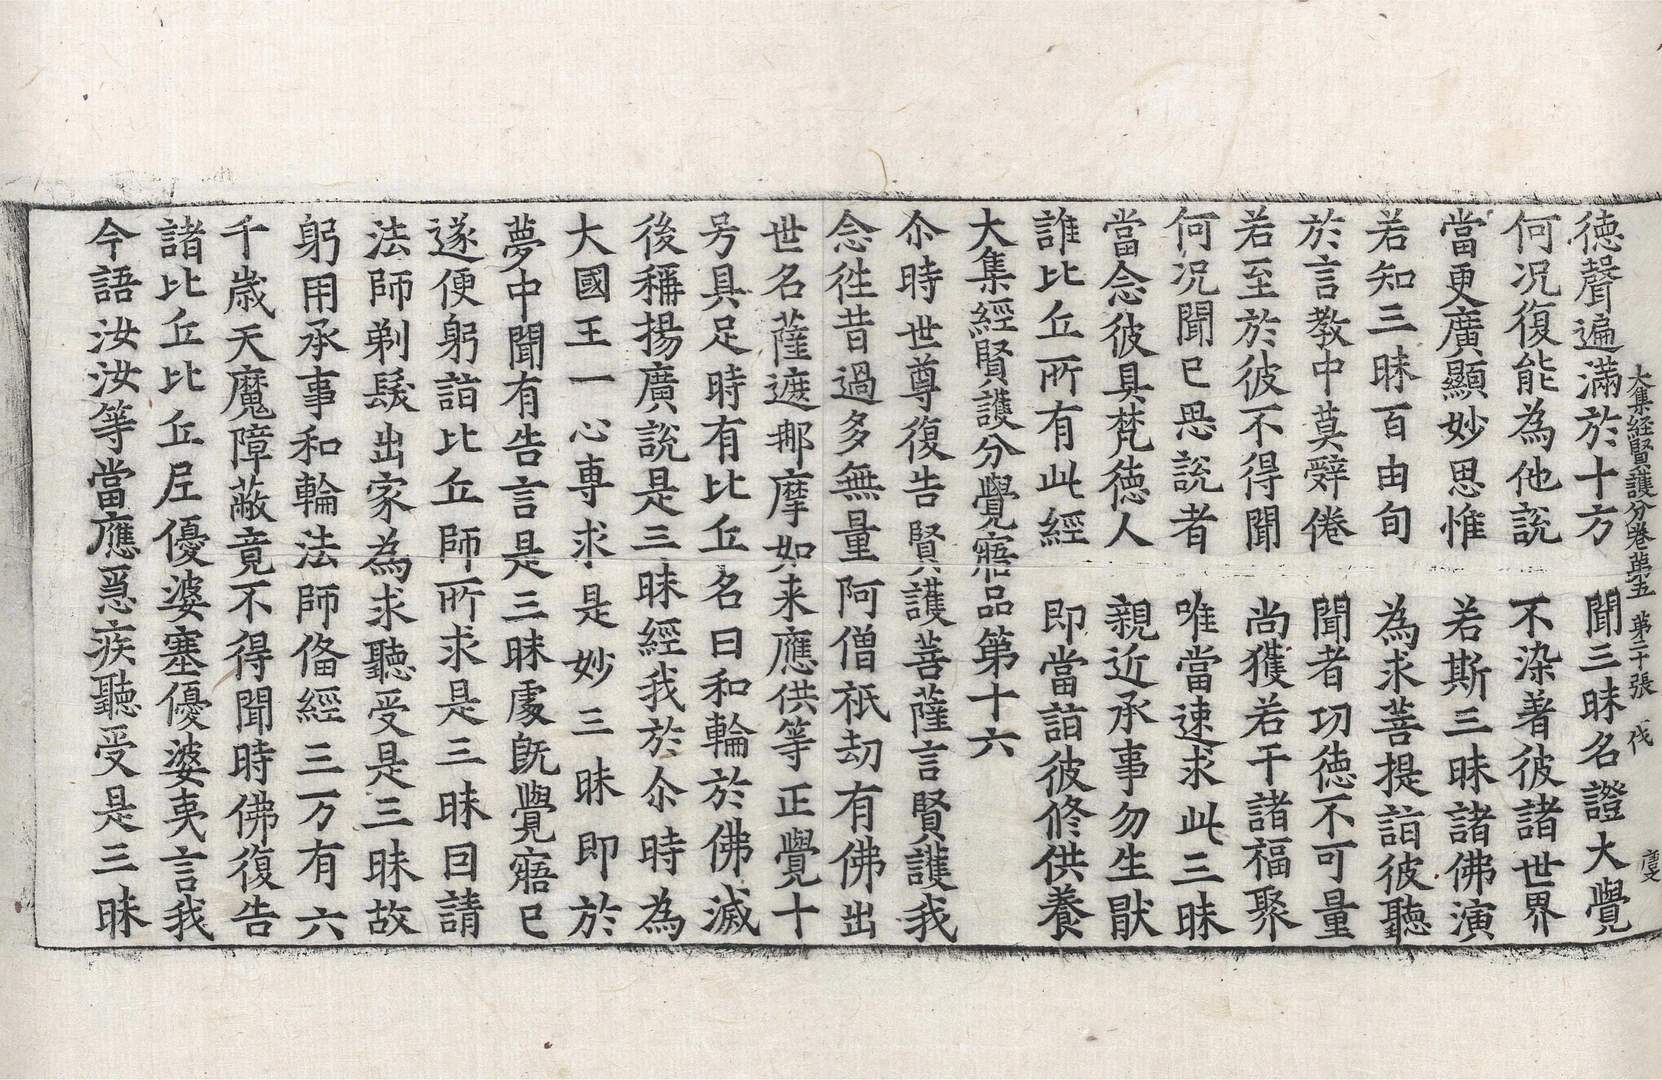 大集経賢護分卷第五　第二十張　伐
德聲遍滿於十方　聞三昧名證大覺
何況復能為他說　不染著彼諸世界
當更廣顯妙思惟　若斯三昧諸佛演
若知三昧百由旬　為求菩提詣彼聽
於言教中莫辭倦　聞者功德不可量
若至於彼不得聞　尚獲若干諸福聚
何況聞已思說者　唯當速求此三昧
當念彼具梵德人　親近承事勿生猒
誰比丘所有此經　即當詣彼修供養
大集經賢護分覺寤品第十六
尒時世尊復告賢護菩薩言賢護我
念往昔過多無量阿僧祇劫有佛出
世名薩遮那摩如来應供等正覺十
号具足時有比丘名曰和輪於佛滅
後稱揚廣說是三昧經我於尒時為
大國王一心專求是妙三昧即於
夢中聞有告言是三昧處旣覺寤已
遂便躬詣比丘師所求是三昧因請
法師剃髮出家為求聽受是三昧故
躬用承事和輪法師俻經三万有六
千歲天魔障蔽竟不得聞時佛復告
諸比丘比丘尼優婆塞優婆夷言我
今語汝汝等當應急疾聽受是三昧